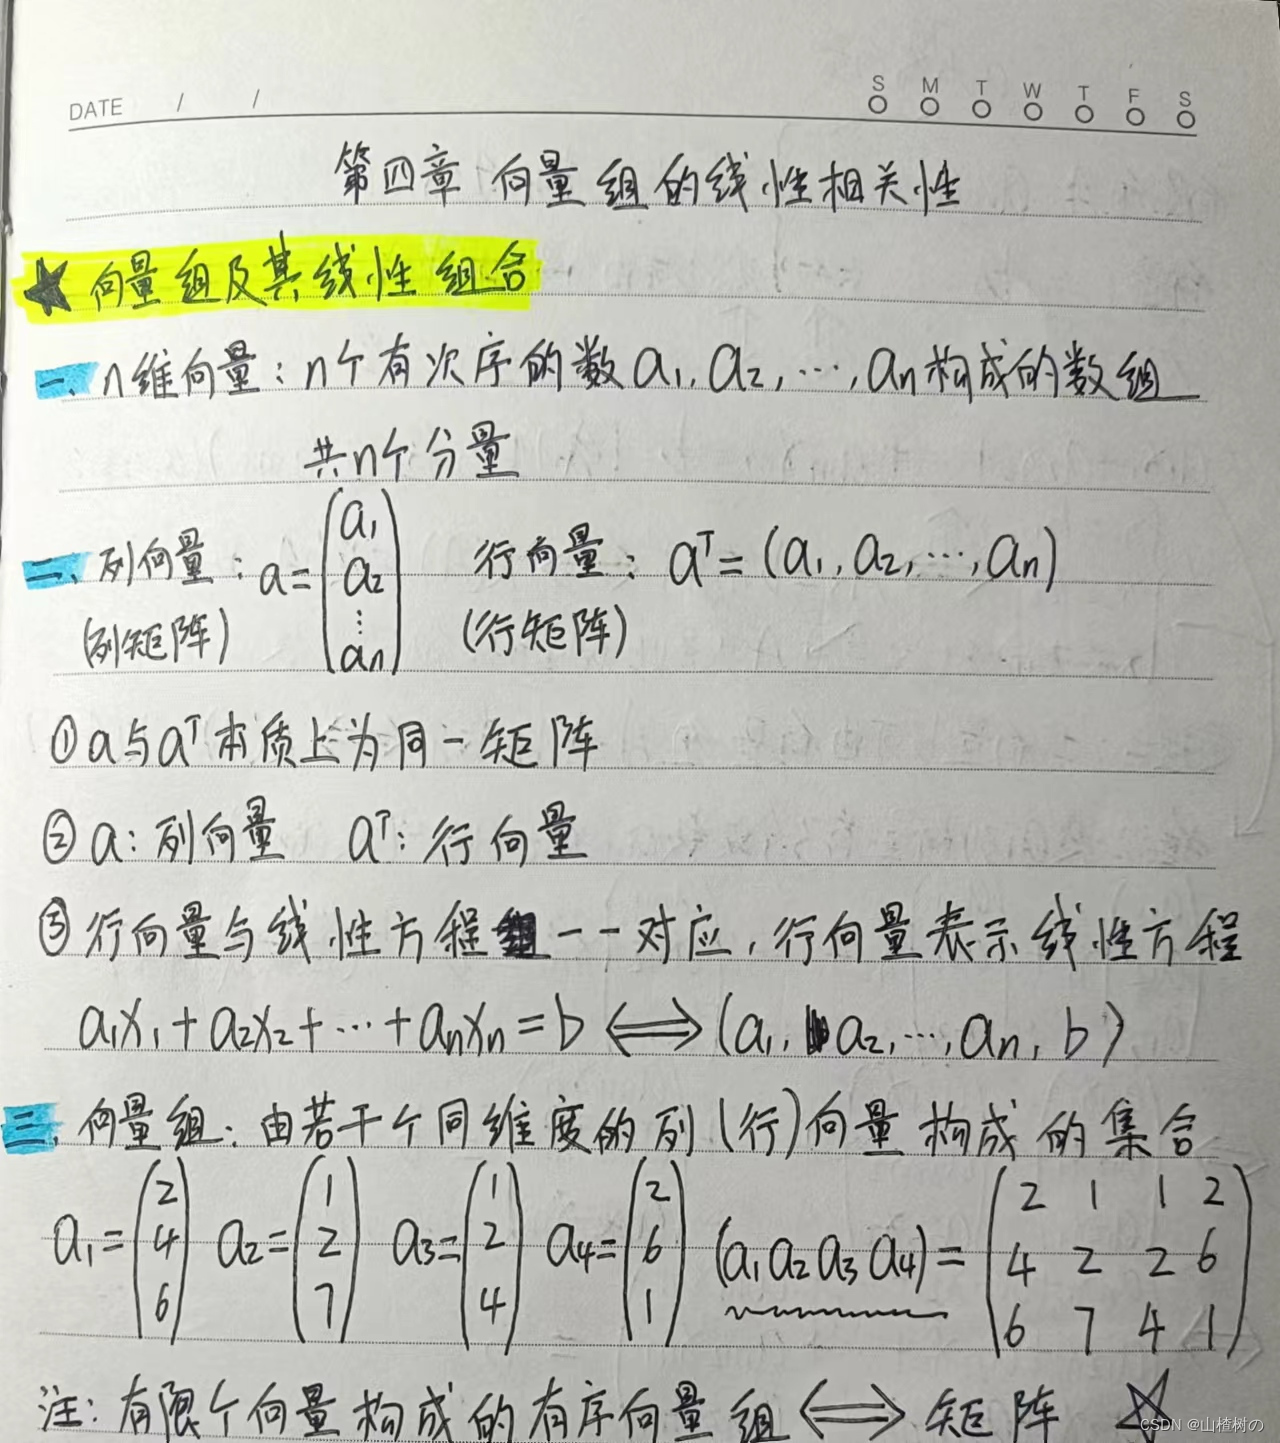 DATE / / S M T W T F S
第四章 向量组的线性相关性
★ 向量组及其线性组合
一、n维向量：n个有次序的数a₁, a₂, ⋯, aₙ构成的数组
共n个分量
二、列向量：a=(a₁ a₂ ⋮ aₙ) 行向量：aᵀ=(a₁, a₂, ⋯, aₙ)
(列矩阵) (行矩阵)
①a与aᵀ本质上为同一矩阵
②a：列向量 aᵀ：行向量
③行向量与线性方程一一对应，行向量表示线性方程
a₁x₁+a₂x₂+⋯+aₙxₙ=b ⟺ (a₁, a₂, ⋯, aₙ, b)
三、向量组：由若干个同维度的列(行)向量构成的集合
a₁=(2 4 6) a₂=(1 2 7) a₃=(1 2 4) a₄=(2 6 1) (a₁ a₂ a₃ a₄)=(2 1 1 2
4 2 2 6
6 7 4 1)
注：有限个向量构成的有序向量组 ⟺ 矩阵 ☆
CSDN @山楂树の